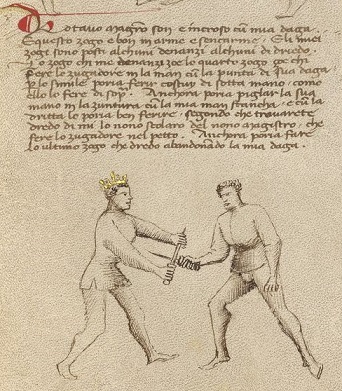 Octavo magistro son e incroso cum mia daga.
E questo zogo e bon in arme e senç arme. E li miei
zogi sono posti alchuni denanzi alchuni di driedo.
Lo zogo chi me denanzi zoe lo quarto zogo che
fere lo zugadore in la man cum la punta di sua daga
per lo simile poria ferir costuy di sotta mano como
ello lo fere di sora. Anchora poria piglar la sua
mano in la zuntura cum la mia man stancha. e cum la
dritta lo poria ben ferire. segondo che trovarete
dredo di mi lo nono scolaro del nono magistro. che
fere lo zugadore nel petto. Anchora poria fare
lo ultimo zogo che dredo abandonando la mia daga.